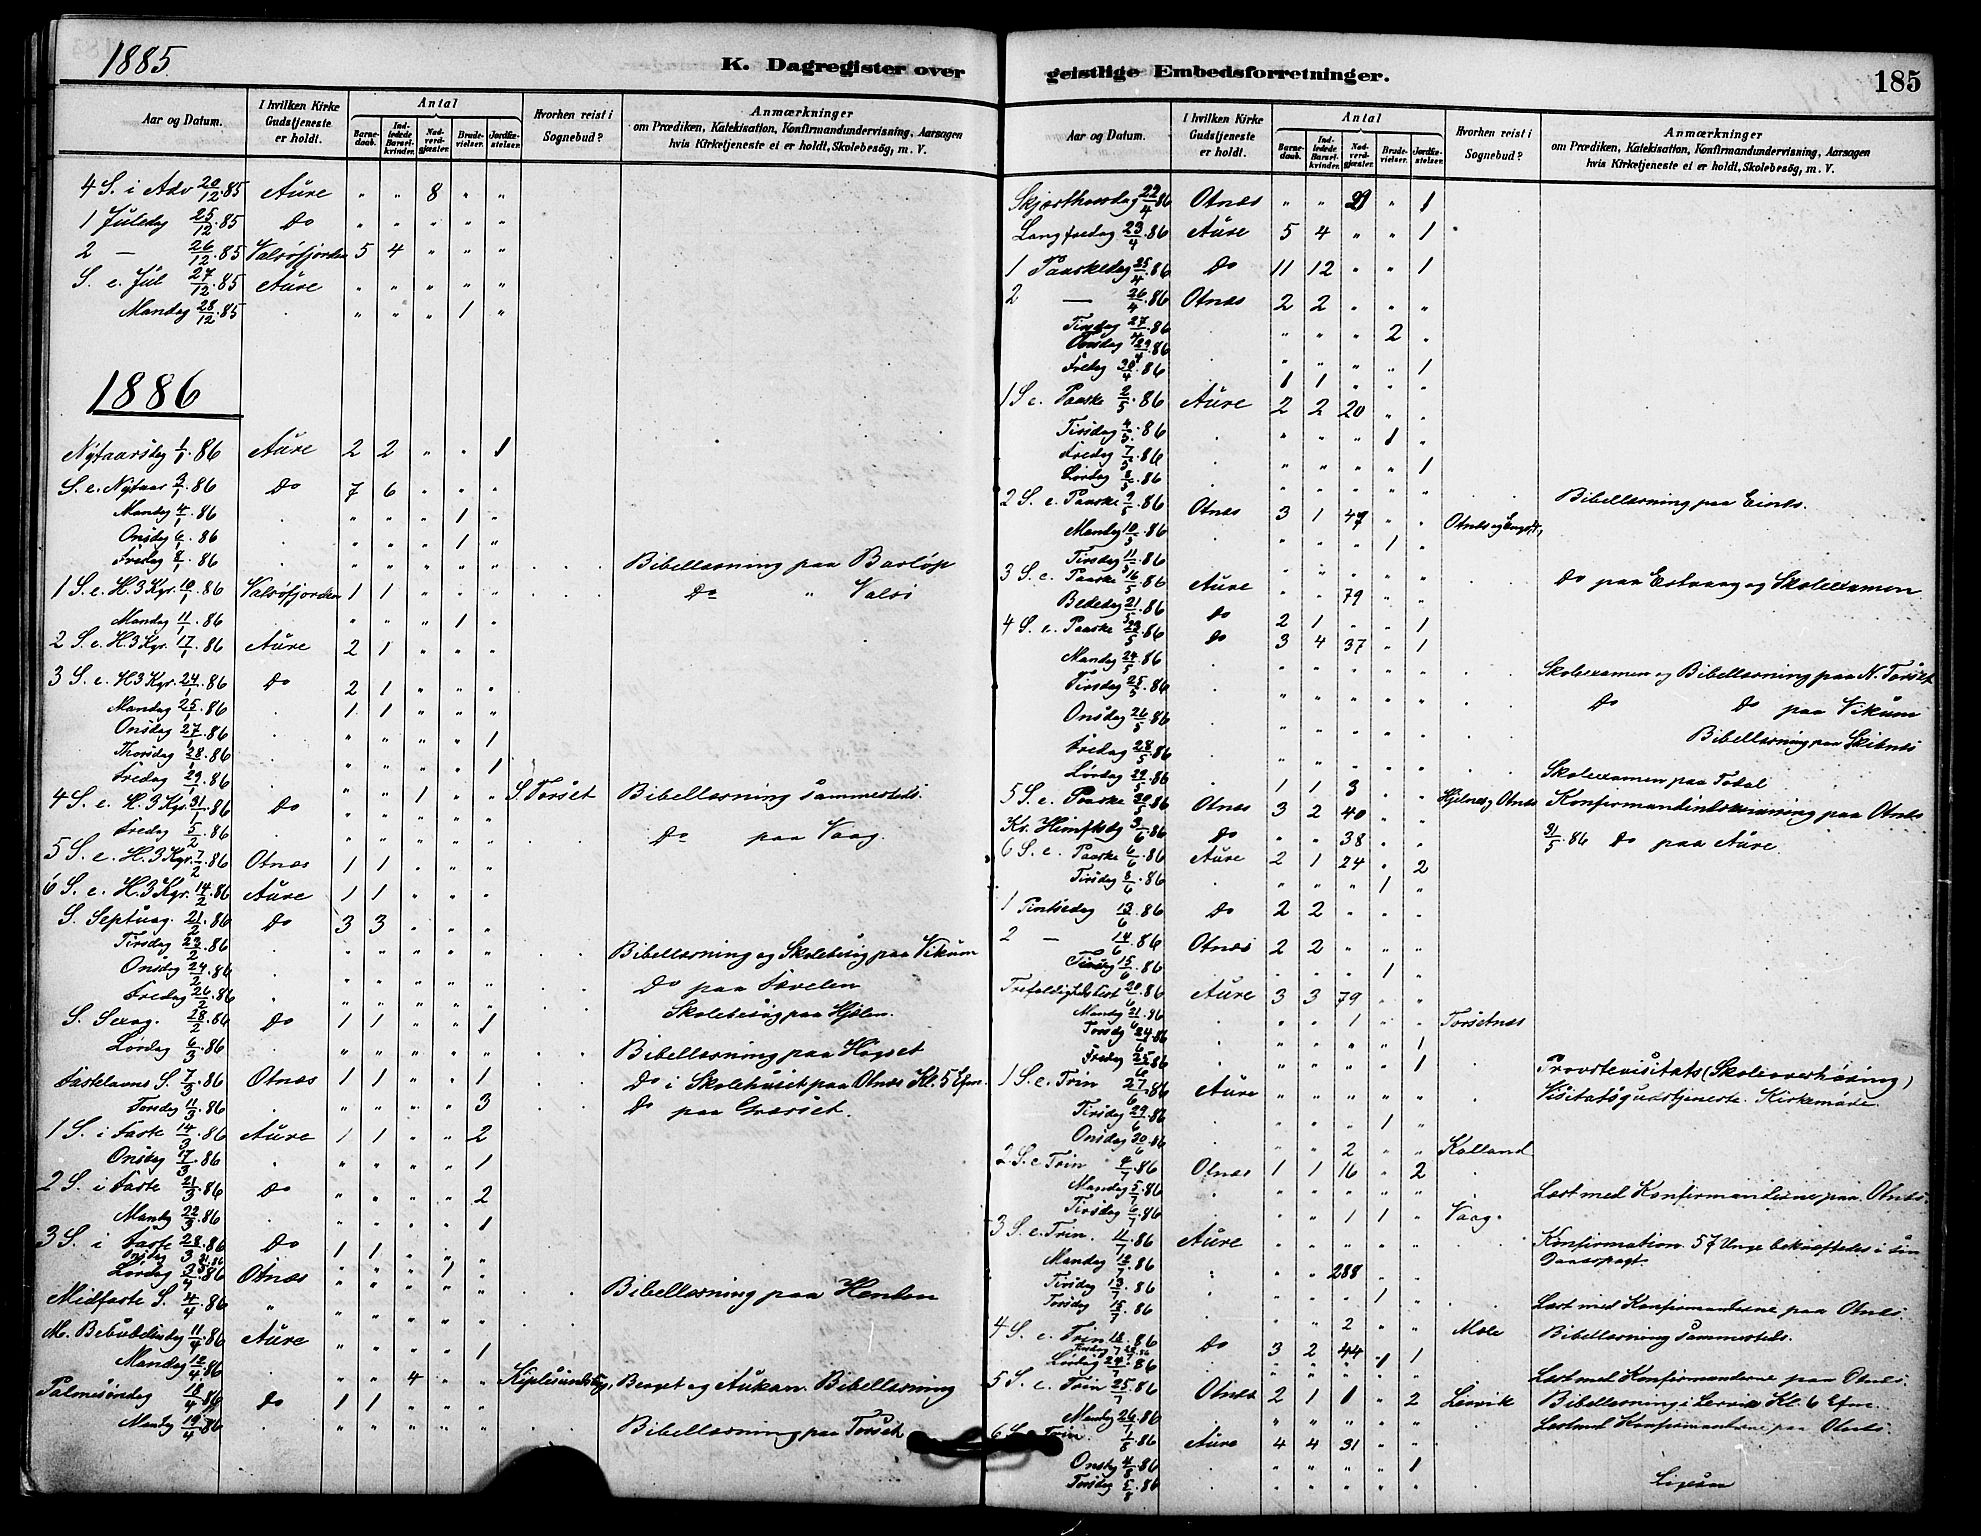 1885
K. Dagregister over geistlige Embedsforretninger.
185
Aar og Datum.
I hvilken Kirke Gudstjeneste er holdt.
Antal
Barnedaab.
Indledede Barselkvinder.
Nadverdgjæster.
Brudevielser.
Jordfæstelser.
Hvorhen reist i Sognebud?
Anmærkninger
om Prædiken, Katekisation, Konfirmandundervisning, Aarsagen
hvis Kirketjeneste ei er holdt, Skolebesög, m. V.
4 S. i Adv 20/12.85 Aure " " 8 " "
1 Juledag 25/12.85 Do " " " " "
2 — 26/12.85 Valsøfjorden 5 4 " " "
S. e. Jul 27/12.85 Aure " " " " "
Mandag 28/12.85 . " " " 1 "
1886
Nytaarsdag 1/1.86 Aure 2 2 " " 1
S. e. Nytaar 3/1.86 Do 7 6 " " "
Mandag 4/1.86 . " " " 1 "
Onsdag 6/1.86 . " " " 1 "
Fredag 8/1.86 . " " " " " . . Bibellæsning paa
1 S. e. H. 3 Kgr. 10/1.86 Valsøfjorden 1 1 " " " . . Do " Valsø
Mandag 11/1.86 . " " " 1 "
2 S. e. H. 3 Kgr. 17/1.86 Aure 2 1 " " "
3 S. e. H 3 Kgr. 24/1.86 Do 2 1 " " "
Mandag 25/1.86 . 1 1 " " "
Onsdag 27/1.86 . " " " " 1
Thorsdag 28/1.86 . " " " " 1
Fredag 29/1.86 . " " 1 " " S. Torset Bibellæsning sammesteds.
4 S. e. H. 3 Kgr. 31/1.86 Do " " " " "
Fredag 5/2.86 . " " " " " . . Do paa Vaag.
5 S. e. H. 3 Kgr. 7/2.86 Otnæs 1 1 " " "
6 S. e. H. 3 Kgr. 14/2.86 Aure 1 1 " " "
S. Septuag. 21/2.86 Do 3 3 " " "
Tirsdag 23/2.86 . " " " " " . . Bibellæsning og Skolebesøg paa Vikum
Onsdag 24/2.86 . " " " " " . . Do paa
Fredag 26/2.86 . " " " " " . . Skolebesøg paa
S. Sexag. 28/2.86 Do 1 1 " " 1
Lørdag 6/3.86 . " " " " " . . Bibellæsning paa Høgset
Fastelavns S. 7/3.86 Otnæs 1 1 " " 1 . . Do i Skolehuset paa Otnæs Kl. 5 Efm.
Torsdag 11/3.86 . " " " " 3 . . Do paa
1 S. i Faste 14/3.86 Aure 1 1 " " 2
Onsdag 17/3.86 . " " " " 1
2 S. i Faste 21/3.86 Do " " " " 2
Mandg 22/3.86 . " " " " 1
3 S. i Faste 28/3.86 Do 1 1 " " "
Onsdag 31/3.86 " " " 1 "
Lørdag 3/4.86 Otnæs " " " " " . . Bibellæsning paa Henden
Midfaste S. 4/4.86 " " " " " "
M. Bebudelsedag 11/4.86 Aure " " " " 1
Mandag 12/4.86 . " " 4 " " Berget og Aukan. Bibellæsning
Palmesøndag 18/4.86 Do 1 1 " " "
Mandg 19/4.86 . " " " " " . . Bibellæsning paa Torset
Aar og Datum.
I hvilken Kirke Gudstjeneste er holdt.
Antal
Barnedaab.
Indledede Barselkvinder.
Nadverdgjæster.
Brudevielser.
Jordfæstelser.
Hvorhen reist i Sognebud?
Anmærkninger
om Prædiken, Katekisation, Konfirmandundervisning, Aarsagen
hvis Kirketjeneste ei er holdt, Skolebesög, m. V.
Skjærthorsdag 22/4.86 Otnæs " " 29 " 1
Langfredag 23/4.86 Aure 5 4 " " 1
1 Paaskedag 25/4.86 Do 11 12 " " 1
2 — 26/4.86 Otnæs 2 2 " " "
Tirsdag 27/4.86 . " " " 2 "
Torsdag 29/4.86 . " " " " 1
Fredag 30/4.86 . 1 1 " " "
1 S e. Paaske 2/5.86 Aure 2 2 20 " "
Tirsdag 4/5.86 . " " " 1 "
Fredag 7/5.86 . " " " " 1
Lørdag 8/5.86 . " " " " " . . Bibellæsning paa
2 S. e. Paaske 9/5.86 Otnæs 3 1 47 " " Otnæs og
Mandag 10/5.86 . " " " 1 "
Tirsdag 11/5.86 . " " " " " . . Do paa og Skoleexamen
3 S. e. Paaske 16/5.86 Aure " " 79 " "
Bededag 21/5.86 Do 2 1 " " 1
4 S. e. Paaske 23/5.86 Do 3 4 37 " 1
Mandag 24/5.86 . " " " " " . . Skoleexamen og Bibellæsning paa N. Torset
Tirsdag 25/5.86 . " " " " " . . Do Do paa Vikum
Onsdag 26/5.86 . " " " " " . . Bibellæsning paa Skibnæs
Fredag 28/5.86 . " " " " " . . Skoleexamen paa Todal
Lørdag 29/5.86 . 1 1 3 " " Hjelnes, Otnæs Konfirmandundervisning paa Otnæs
5 S. e. Paaske 30/5.86 Otnæs 3 2 40 " " 31/5.86 Do paa Aure.
Kr. Himftsdg 3/6.86 Do " " 38 " "
6 S. e. Paaske 6/6.86 Aure 2 1 24 " 2
Tirsdag 8/6.86 . " " " 1 "
1 Pintsedag 13/6.86 Do 2 2 " " "
2 — 14/6.86 Otnæs 2 2 " " "
Tirsdag 15/6.86 . " " " 1 "
Trefoldigheds Fest 20/6.86 Aure 3 3 79 " "
Mandag 21/6.86 . " " 1 " " Torsetnæs
Torsdg 24/6.86 . " " " " 1
Fredag 25/6.86 . " " " " 1 . Provstevisitats (Skoleoverhøring)
1 S. e. Trin 27/6.86 Aure " " " " " . Visitatsgudstjeneste. Kirkemøde.
Tirsdag 29/6.86 . " " " 1 "
Onsdag 30/6.86 . " " 2 " " Kalland
2 S. e Trin 4/7.86 Otnæs 1 1 16 " 2 .
Mandag 5/7.86 . " " " " " . Læst med Konfirmanderne paa Otnæs.
Tirsdag 6/7.86 . " " 1 1 " Vaag.
3 S. e. Trin. 11/7.86 Aure " " " " " . Konfirmation. 57 Unge bekræftedes i sin
Daabspagt.
Mandag 12/7.86 . " " 288 " "
Tirsdag 13/7.86 . " " " 1 " . Læst med Konfirmanderne paa Otnæs.
Torsdag 15/7.86 . " " 2 " " Mæle Bibellæsning sammesteds.
4 S. e. Trin 18/7.86 Do 3 2 44 " 1
Lørdag 24/7.86 . " " " " " Læst med Konfirmanderne paa Otnæs.
5 S. e. Trin 25/7.86 Otnæs 2 1 1 " 2 Lesvik Bibellæsning i Lervik Kl. 6 Efm.
Mandag 26/7.86 . " " " " " . Læst med Konfirmanderne paa Otnæs.
6 S. e. Trin. 1/8.86 Aure 4 4 31 " "
Onsdag 4/8.86 . " " " " 1
Torsdag 5/8.86 . " " " " " . Ligesaa